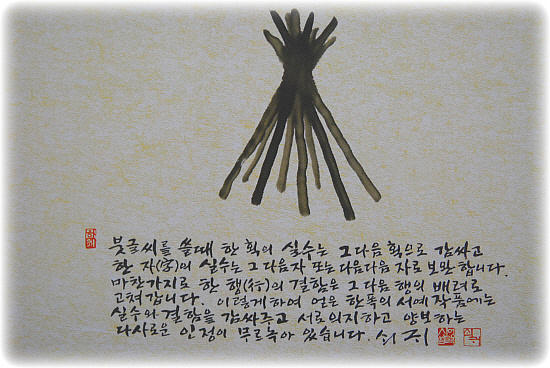 함께
붓글씨를 쓸때 한 획의 실수는 그다음 획으로 감싸고
한 자(字)의 실수는 그 다음자 또는 다음다음 자로 보완합니다.
마찬가지로 한 행(行)의 결함은 그 다음 행의 배려로
고쳐갑니다. 이렇게하여 얻은 한폭의 서예 작품에는
실수와 결함을 감싸주고 서로 의지하고 양보하는
다사로운 인정이 무르녹아 있습니다.